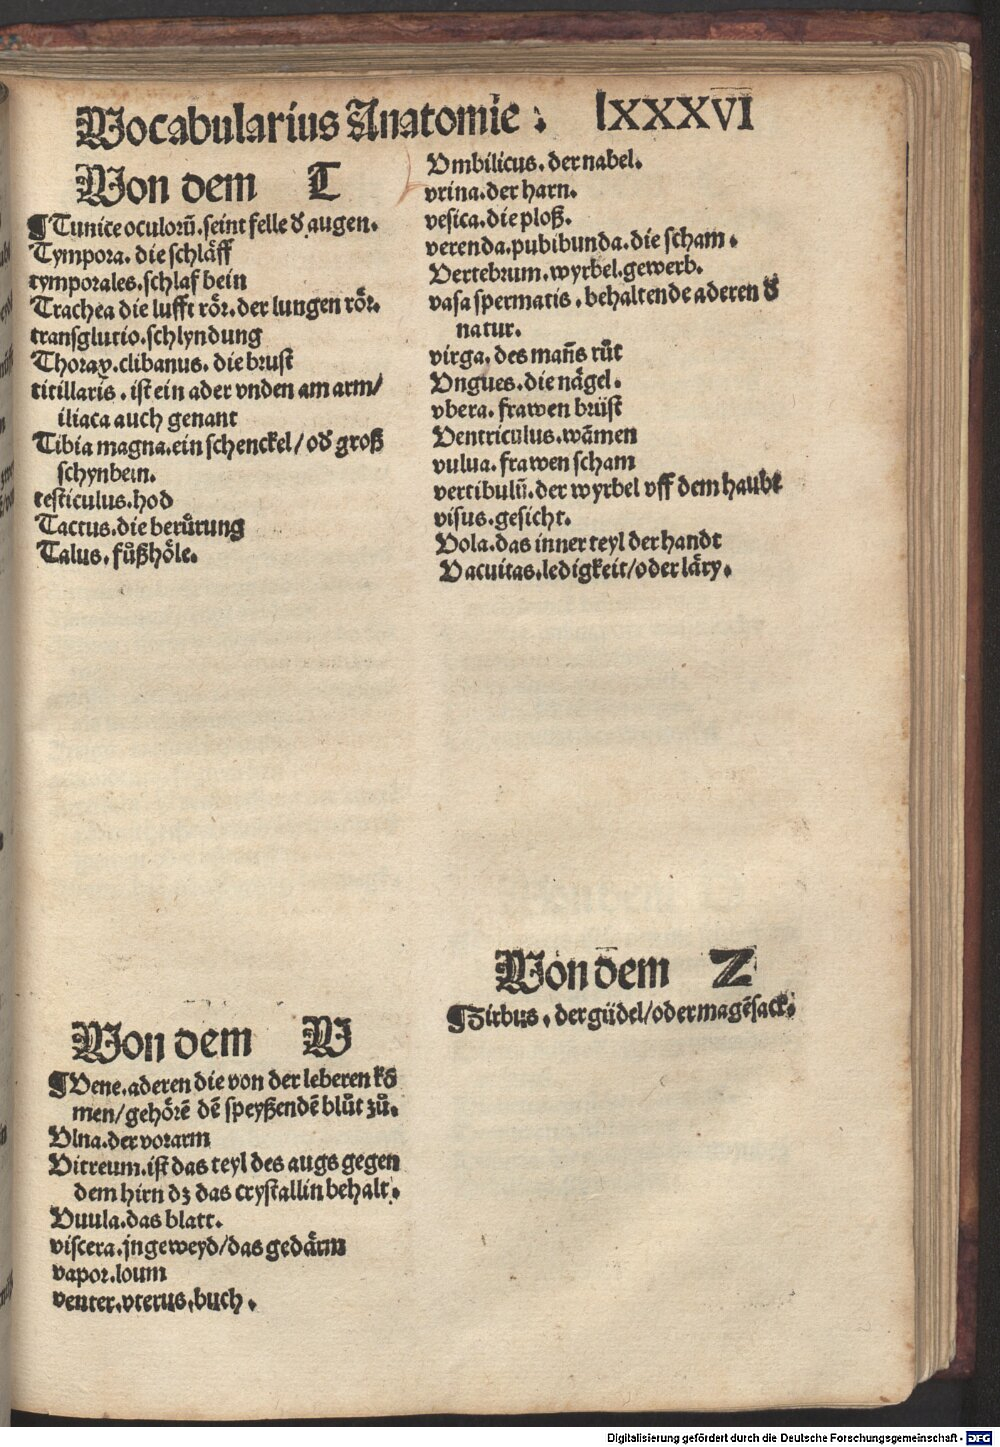 Vocabularius Anatomie : lXXXVI
Von dem T
¶Tunice oculorū. seint felle d' augen.
Tympora. die schläff
tymporales. schlaf bein
Trachea die lufft rör. der lungen rör.
transglutio. schlyndung
Thorax. clibanus. die brust
titillaris. ist ein ader vnden am arm/
iliaca auch genant
Tibia magna. ein schenckel/od' groß
schynbein.
testiculus. hod
Tactus. die berůrung
Talus. fůßhöle.
Von dem V
¶Vene. aderen die von der leberen kō
men/gehörē dē speyßendē blůt zů.
Vlna. der vorarm
Vitreum. ist das teyl des augs gegen
dem hirn dz das crystallin behalt.
Vuula. das blatt.
viscera. jngeweyd/das gedärm
vapor. loum
venter. vterus. buch.
Vmbilicus. der nabel.
vrina. der harn.
vesica. die ploß.
verenda. pubibunda. die scham.
Vertebrum. wyrbel. gewerb.
vasa spermatis. behaltende aderen d'
natur.
virga. des mañs růt
Vngues. die nägel.
vbera. frawen brüst
Ventriculus. wāmen
vulua. frawen scham
vertibulū. der wyrbel vff dem haubt
visus. gesicht.
Vola. das inner teyl der handt
Vacuitas. ledigkeit/oder läry.
Von dem Z
¶Zirbus. der güdel/oder magēsack.
Digitalisierung gefördert durch die Deutsche Forschungsgemeinschaft - DFG